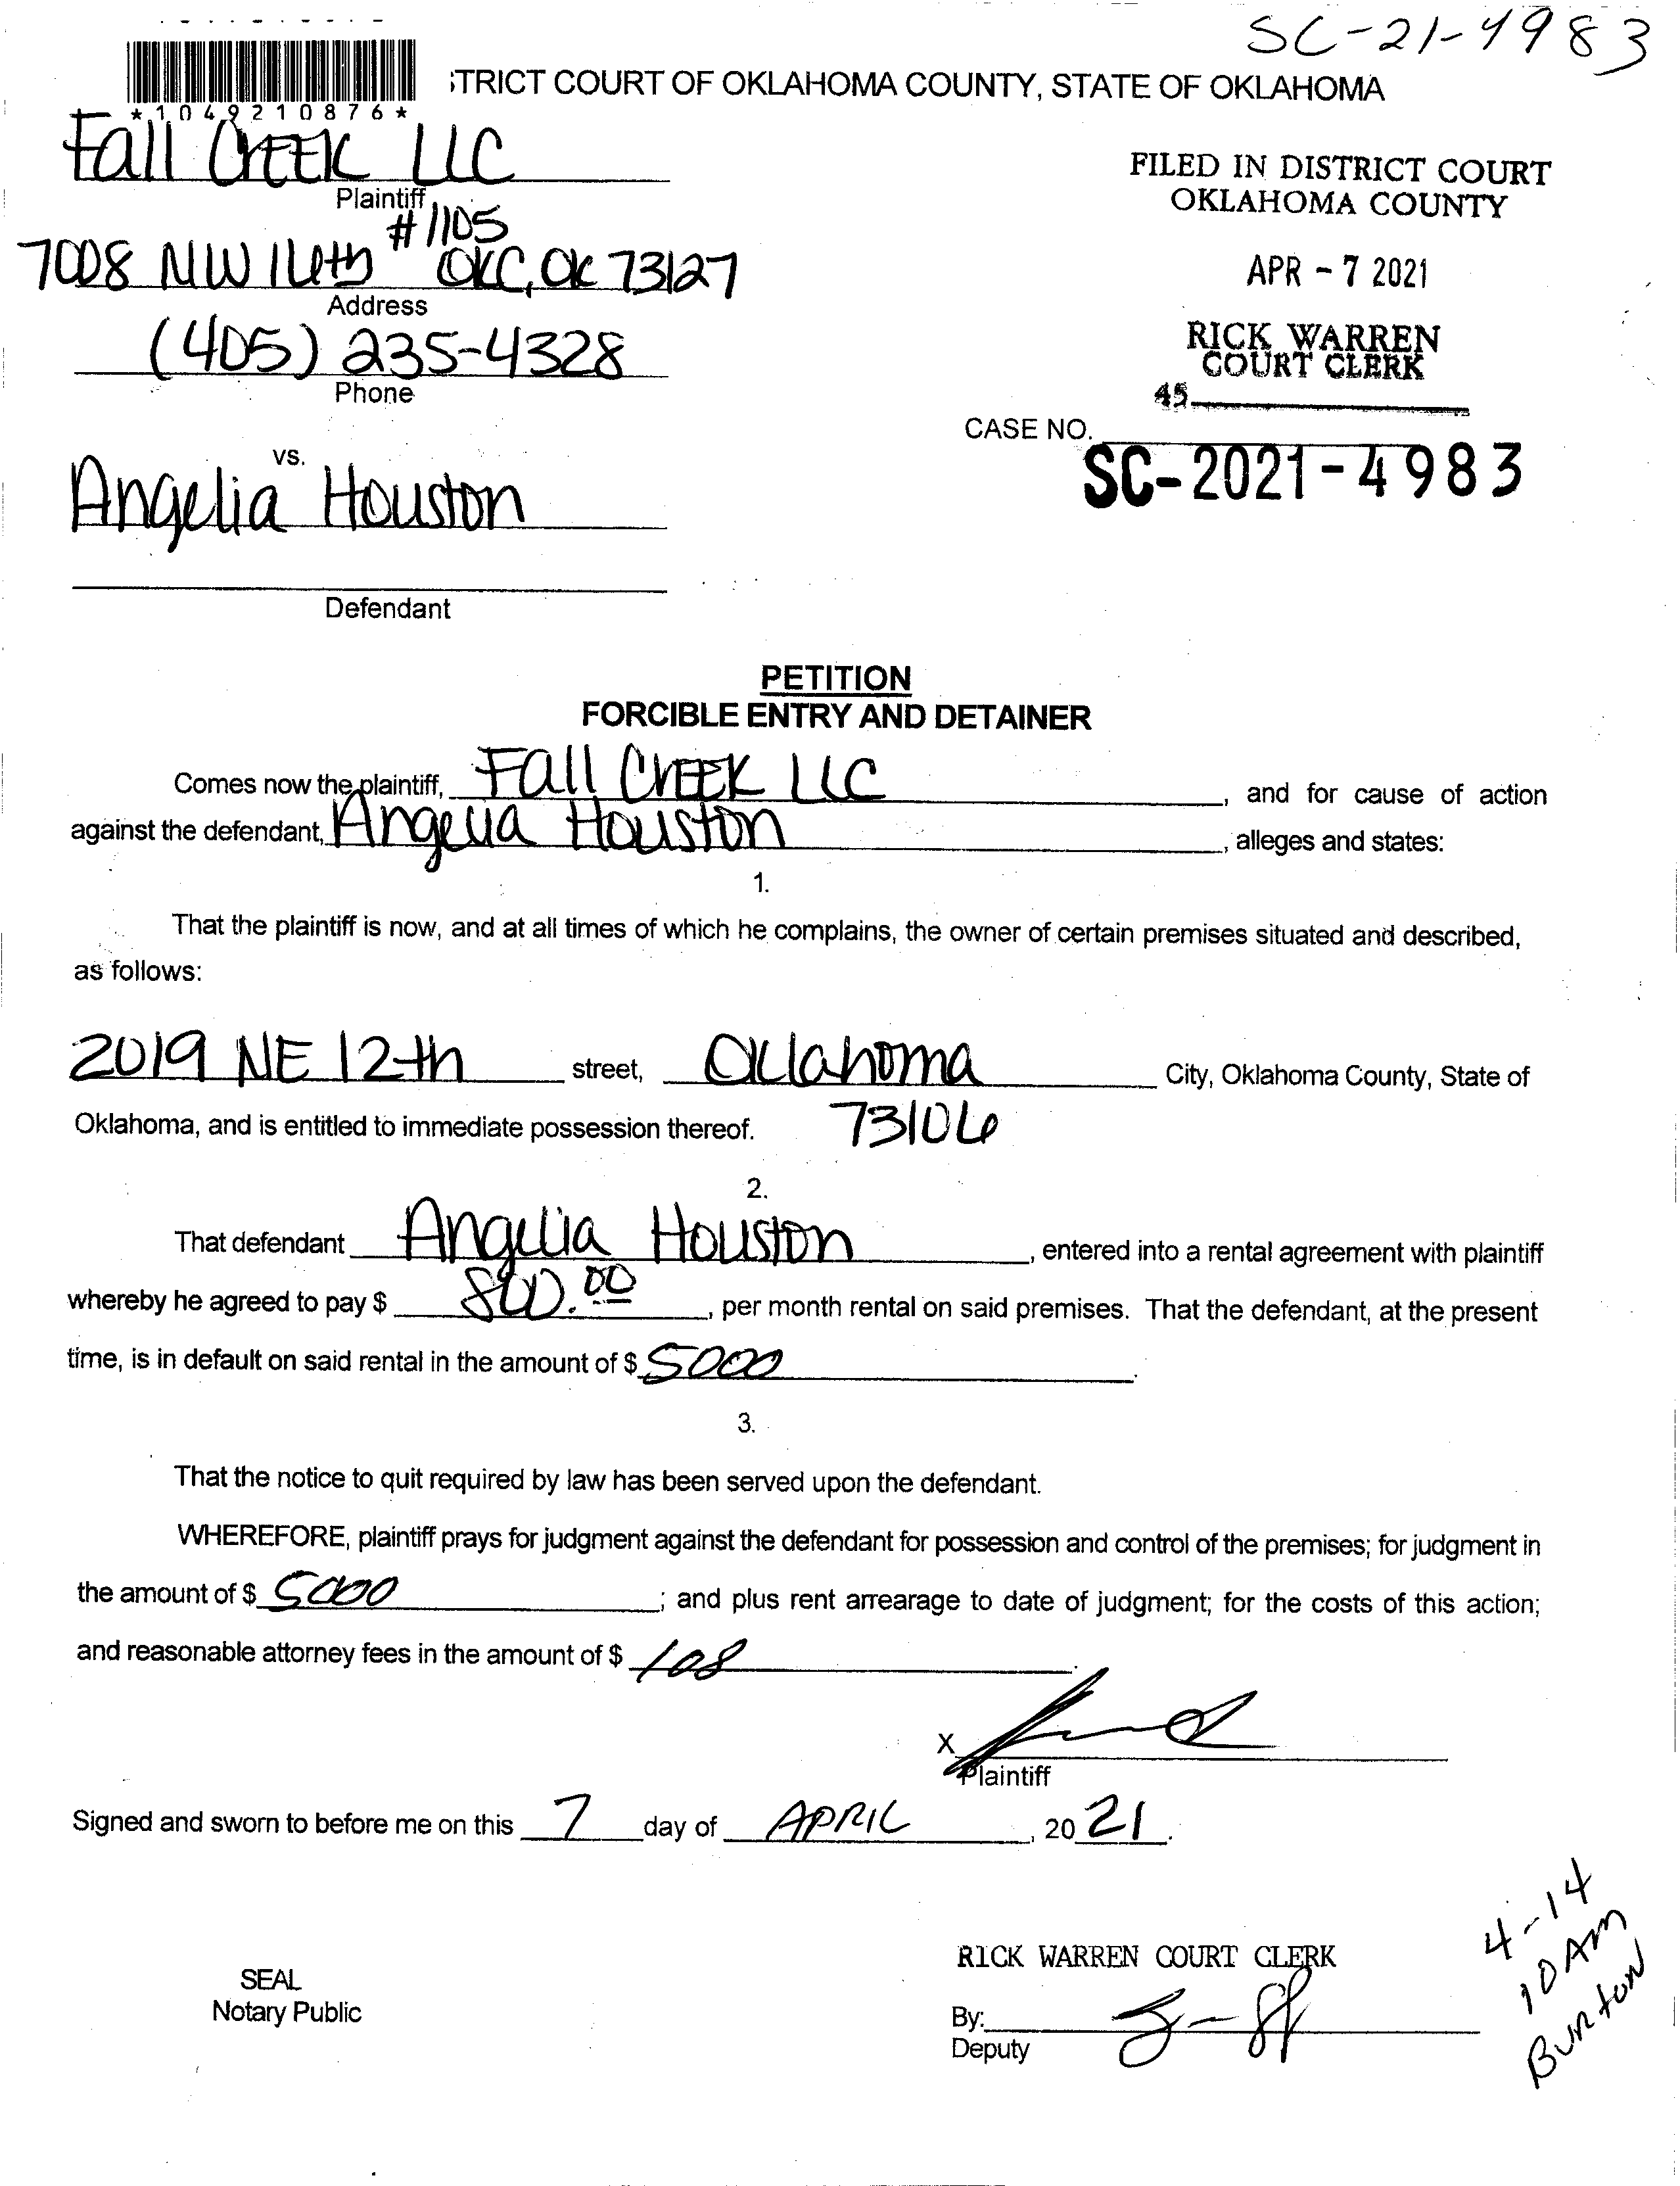 SC-21-4983
*1049210876*
:TRICT COURT OF OKLAHOMA COUNTY, STATE OF OKLAHOMA
Fall Creek LLC
Plaintiff
FILED IN DISTRICT COURT
OKLAHOMA COUNTY
#1105
7008 NW 16th OKC, OK 73127
Address
APR - 7 2021
(405) 235-4328
Phone
RICK WARREN
COURT CLERK
45
CASE NO.
SC-2021-4983
vs.
Angelia Houston
Defendant
PETITION
FORCIBLE ENTRY AND DETAINER
Comes now the plaintiff, Fall Creek LLC, and for cause of action
against the defendant, Angelia Houston, alleges and states:
1.
That the plaintiff is now, and at all times of which he complains, the owner of certain premises situated and described,
as follows:
2019 NE 12th street, Oklahoma City, Oklahoma County, State of
Oklahoma, and is entitled to immediate possession thereof. 73106
2.
That defendant Angelia Houston, entered into a rental agreement with plaintiff
whereby he agreed to pay $ 800.00, per month rental on said premises. That the defendant, at the present
time, is in default on said rental in the amount of $ 5000.
3.
That the notice to quit required by law has been served upon the defendant.
WHEREFORE, plaintiff prays for judgment against the defendant for possession and control of the premises; for judgment in
the amount of $ 5000; and plus rent arrearage to date of judgment; for the costs of this action;
and reasonable attorney fees in the amount of $ 108.
X
Plaintiff
Signed and sworn to before me on this 7 day of APRIL, 20 21.
4-14
10 AM
Burton
RICK WARREN COURT CLERK
SEAL
Notary Public
By:
Deputy